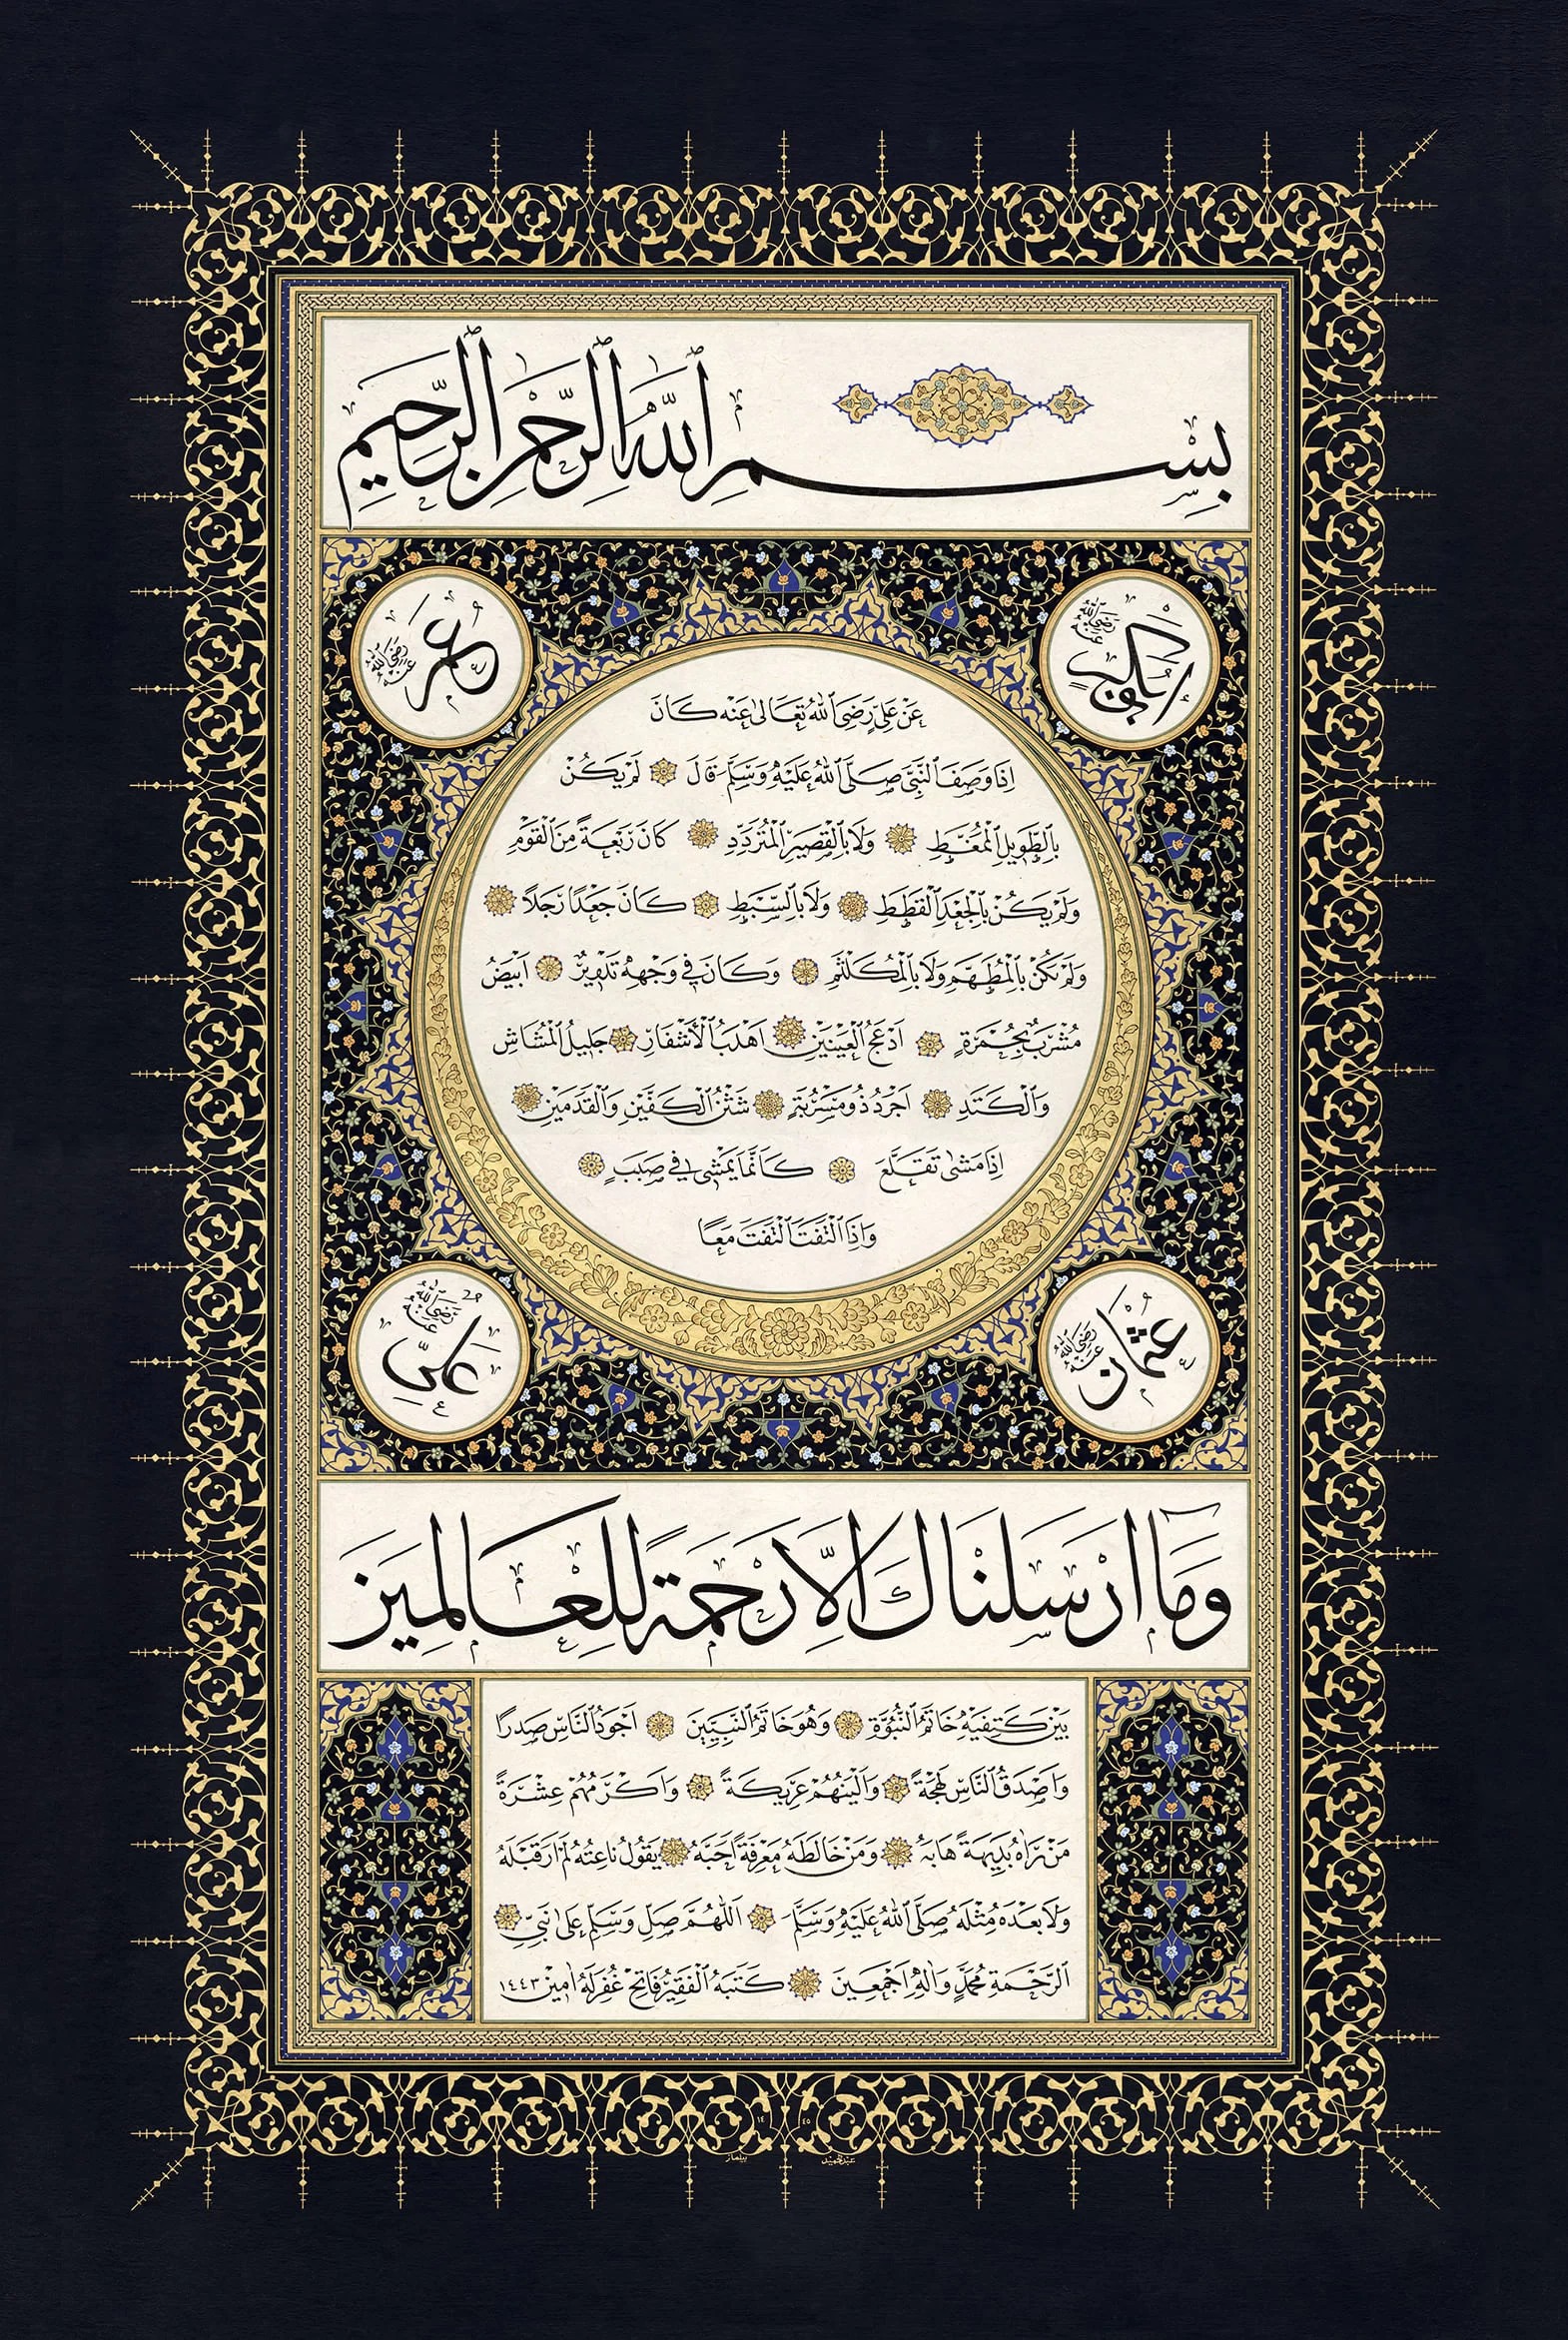 بِسْمِ ٱللهِ ٱلرَّحْمٰنِ ٱلرَّحِيمِ
ابوبكر رَضِيَ ٱللهُ عَنْهُ
عُمَر رَضِيَ ٱللهُ عَنْهُ
عَنْ عَلِيٍّ رَضِيَ ٱللهُ تَعَالٰى عَنْهُ كَانَ
اِذَا وَصَفَ ٱلنَّبِيَّ صَلَّى ٱللهُ عَلَيْهِ وَسَلَّمَ قَالَ لَمْ يَكُنْ
بِٱلطَّوِيلِ ٱلْمُمَّغِطِ وَلَا بِٱلْقَصِيرِ ٱلْمُتَرَدِّدِ كَانَ رَبْعَةً مِنَ ٱلْقَوْمِ
وَلَمْ يَكُنْ بِٱلْجَعْدِ ٱلْقَطَطِ وَلَا بِٱلسَّبِطِ كَانَ جَعْدًا رَجِلًا
وَلَمْ يَكُنْ بِٱلْمُطَهَّمِ وَلَا بِٱلْمُكَلْثَمِ وَكَانَ فِي وَجْهِهِ تَدْوِيرٌ اَبْيَضُ
مُشْرَبٌ بِحُمْرَةٍ اَدْعَجُ ٱلْعَيْنَيْنِ اَهْدَبُ ٱلْأَشْفَارِ جَلِيلُ ٱلْمُشَاشِ
وَٱلْكَتَدِ اَجْرَدُ ذُو مَسْرُبَةٍ شَثْنُ ٱلْكَفَّيْنِ وَٱلْقَدَمَيْنِ
اِذَا مَشٰى تَقَلَّعَ كَاَنَّمَا يَمْشِي فِي صَبَبٍ
وَاِذَا ٱلْتَفَتَ ٱلْتَفَتَ مَعًا
عُثْمَان رَضِيَ ٱللهُ عَنْهُ
عَلِيّ رَضِيَ ٱللهُ عَنْهُ
وَمَا اَرْسَلْنَاكَ اِلَّا رَحْمَةً لِلْعَالَمِينَ
بَيْنَ كَتِفَيْهِ خَاتَمُ ٱلنُّبُوَّةِ وَهُوَ خَاتَمُ ٱلنَّبِيِّينَ اَجْوَدُ ٱلنَّاسِ صَدْرًا
وَاَصْدَقُ ٱلنَّاسِ لَهْجَةً وَاَلْيَنُهُمْ عَرِيكَةً وَاَكْرَمُهُمْ عِشْرَةً
مَنْ رَاٰهُ بَدِيهَةً هَابَهُ وَمَنْ خَالَطَهُ مَعْرِفَةً اَحَبَّهُ يَقُولُ نَاعِتُهُ لَمْ اَرَ قَبْلَهُ
وَلَا بَعْدَهُ مِثْلَهُ صَلَّى ٱللهُ عَلَيْهِ وَسَلَّمَ اَللّٰهُمَّ صَلِّ وَسَلِّمْ عَلٰى نَبِيِّ
ٱلرَّحْمَةِ مُحَمَّدٍ وَاٰلِهِ اَجْمَعِينَ كَتَبَهُ ٱلْفَقِيرُ فَاتِحْ غُفِرَ لَهُ اٰمِينْ ١٤٤٣
١٤ ٤٥
عبدالحميد بيلماز